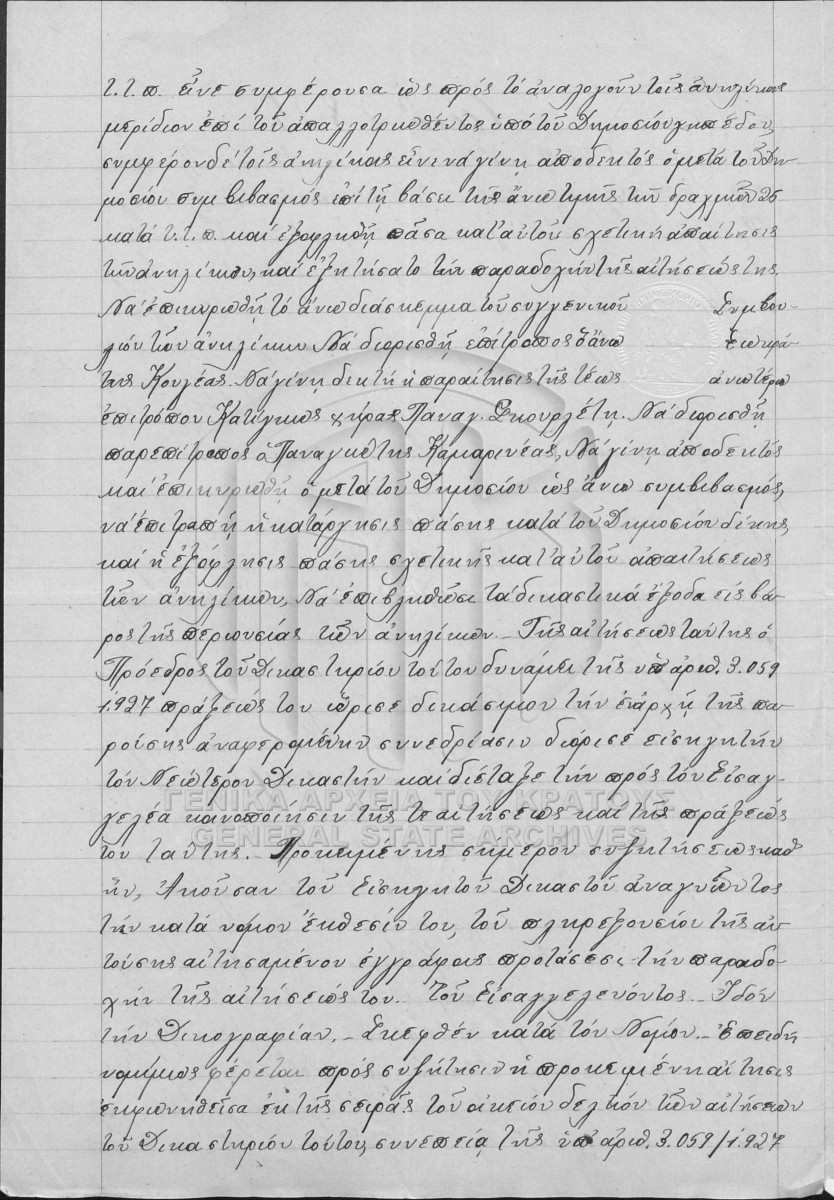 τ.τ.π. εἶνε συμφέρουσα ὡς πρός τό ἀναλογοῦν τοῖς ἀνηλίκοις
μερίδιον ἐπί τοῦ ἀπαλλοτριωθέντος ὑπό τοῦ Δημοσίου γηπέδου,
συμφέρον δέ τοῖς ἀνηλίκοις εἶνε νά γίνῃ ἀποδεκτός ὁ μετά τοῦ Δη-
μοσίου συμβιβασμός ἐπί τῇ βάσει τῆς ἄνω τιμῆς τῶν δραχμῶν 25
κατά τ.τ.π. καί ἐξοφληθῇ πᾶσα κατ' αὐτοῦ σχετική ἀπαίτησις
τῶν ἀνηλίκων, καί ἐζητήσατο τήν παραδοχήν τῆς αἰτήσεώς της
Νά ἐπικυρωθῇ τό ἄνω διάσκεμμα τοῦ συγγενικοῦ Συμβου-
λίου τῶν ἀνηλίκων Νά διορισθῇ ἐπίτροπος ὁ ἄνω Σωκρά-
της Κουλέας. Νά γίνῃ δεκτή ἡ παραίτησις τῆς τέως ἀνωτέρω
ἐπιτρόπου Κατίγκως χήρας Παναγ. Σκουρλέτη. Νά διορισθῇ
παρεπίτροπος ὁ Παναγιώτης Καμαρινέας, Νά γίνῃ ἀποδεκτός
καί ἐπικυρωθῇ ὁ μετά τοῦ Δημοσίου ὡς ἄνω συμβιβασμός,
νά ἐπιτραπῇ ἡ κατάργησις πάσης κατά τοῦ Δημοσίου δίκης,
καί ἡ ἐξόφλησις πάσης σχετικῆς κατ' αὐτοῦ ἀπαιτήσεως
τῶν ἀνηλίκων, Νά ἐπιβληθῶσι τά δικαστικά ἔξοδα εἰς βά-
ρος τῆς περιουσίας τῶν ἀνηλίκων. - Τῆς αἰτήσεως ταύτης ὁ
Πρόεδρος τοῦ Δικαστηρίου τούτου δυνάμει τῆς ὑπ' ἀριθ. 3.059
1.927 πράξεώς του ὥρισε δικάσιμον τήν ἐν ἀρχῇ τῆς πα-
ρούσης ἀναφερομένην συνεδρίασιν διόρισέ εἰσηγητήν
τόν Νεώτερον Δικαστήν καί διέταξε τήν πρός τόν Εἰσαγ-
γελέα κοινοποίησιν τῆς τε αἰτήσεως καί τῆς πράξεώς
του ταύτης. - Προκειμένης σήμερον συζητήσεως καθ'
ἥν, Ἀκοῦσαν τοῦ Εἰσηγητοῦ Δικαστοῦ ἀναγνῶντος
τήν κατά νόμον ἔκθεσίν του, τοῦ πληρεξουσίου τῆς αἰ-
τούσης αἰτησαμένου ἐγγράφοις προτάσεσι τήν παραδο-
χήν τῆς αἰτήσεώς του. Τοῦ Εἰσαγγελεύοντος - Ἰδόν
τήν Δικογραφίαν. - Σκεφθέν κατά τόν Νόμον. - Ἐπειδή
νομίμως φέρεται πρός συζήτησιν ἡ προκειμένη αἴτησις
ἐκφωνηθεῖσα ἐκ τῆς σειρᾶς τοῦ οἰκείου δελτίου τῶν αἰτήσεων
τοῦ Δικαστηρίου τούτου, συνεπείᾳ τῆς ὑπ' ἀριθ. 3.059/1.927
ΓΕΝΙΚΑ ΑΡΧΕΙΑ ΤΟΥ ΚΡΑΤΟΥΣ
GENERAL STATE ARCHIVES